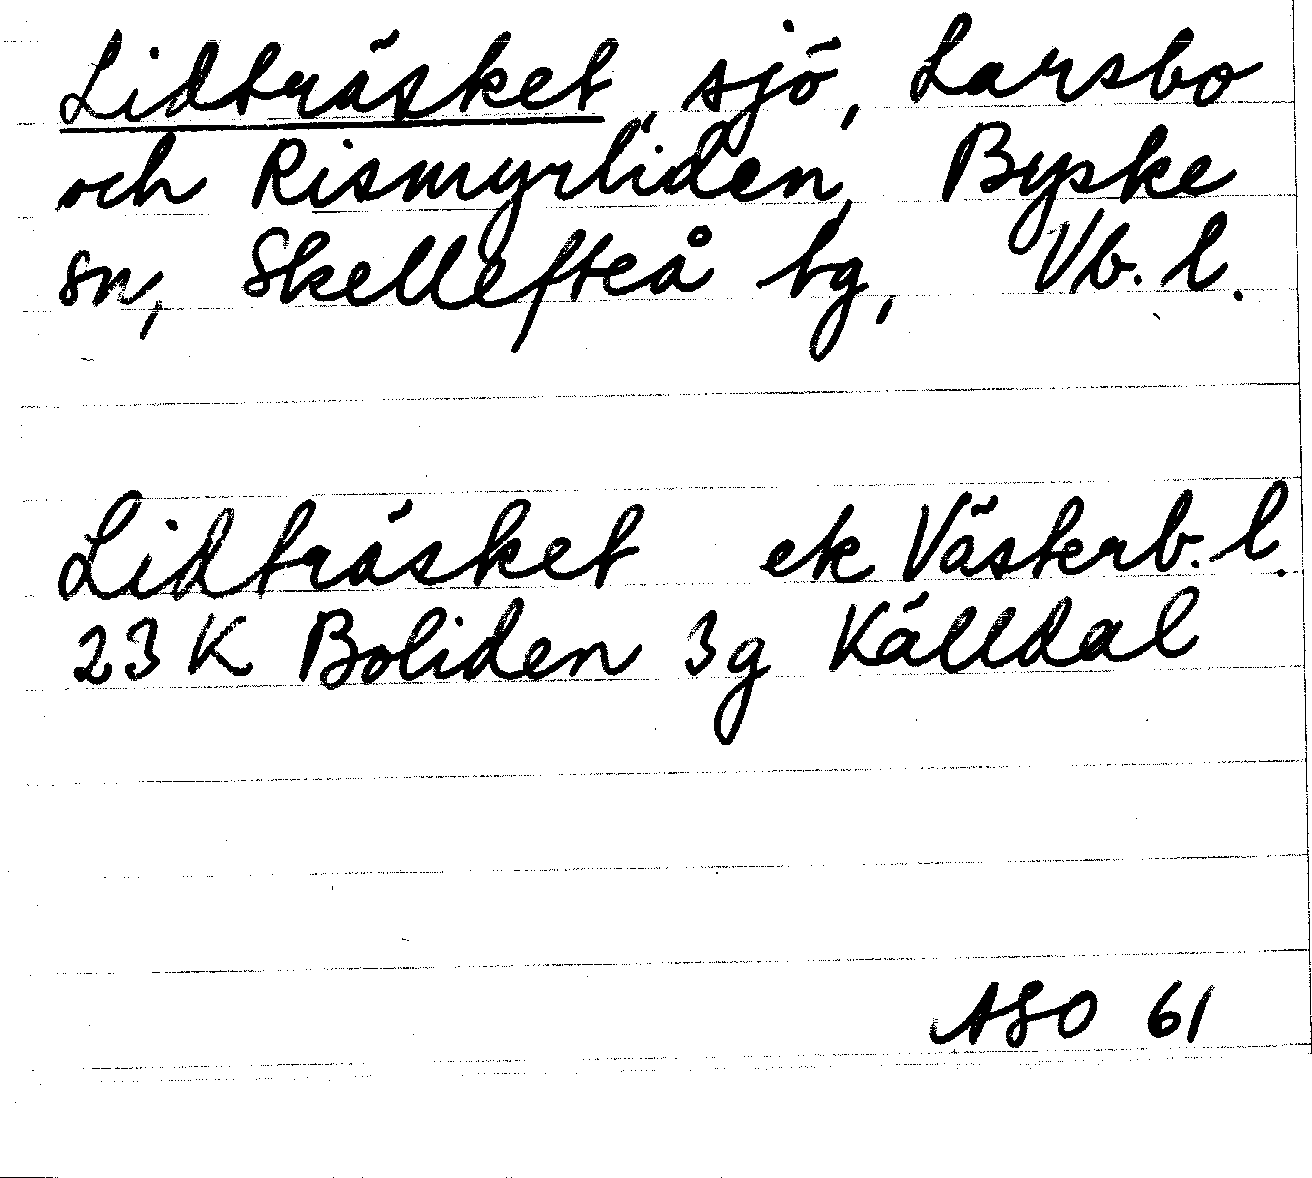 Lidträsket, sjö, Larsbo
och Rismyrliden, Byske
sn, Skellefteå tg, Vb. l.
Lidträsket ek Västerb. l.
23 K Boliden 3g Källdal
ASO 61